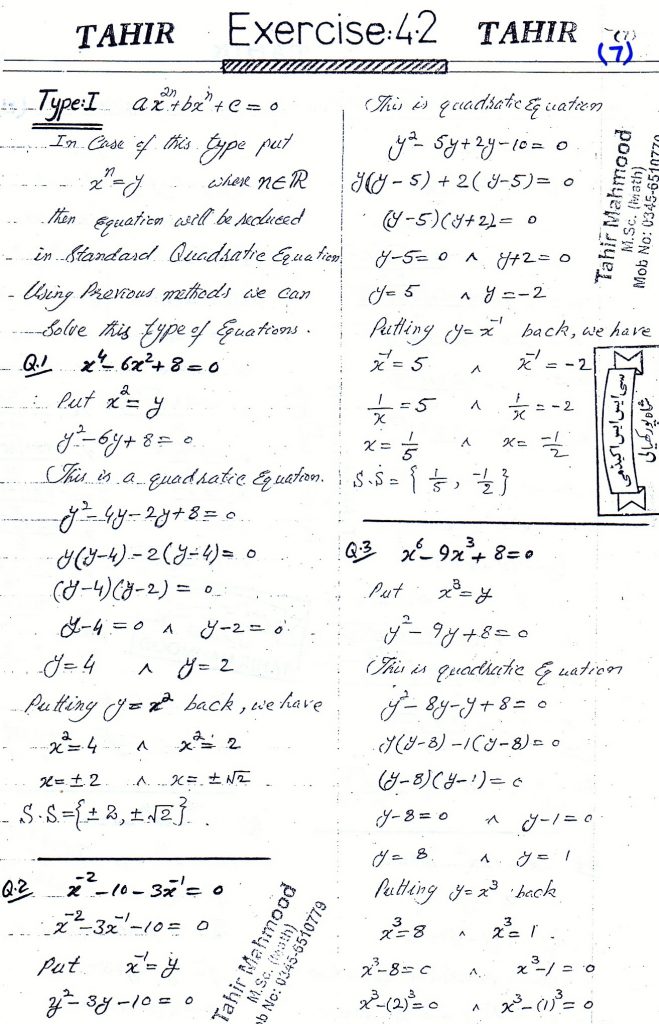 TAHIR Exercise:4.2 TAHIR (7)
(7)
Type:I ax²ⁿ+bxⁿ+c=0
In Case of this type put
xⁿ=y where n∈ℝ
then equation will be reduced
in Standard Quadratic Equation
Using Previous methods we can
Solve this type of Equations.
Q.1 x⁴-6x²+8=0
Put x²=y
y²-6y+8=0
This is a quadratic Equation.
y²-4y-2y+8=0
y(y-4)-2(y-4)=0
(y-4)(y-2)=0
y-4=0 ∧ y-2=0
y=4 ∧ y=2
Putting y=x² back, we have
x²=4 ∧ x²=2
x=±2 ∧ x=±√2
S.S={±2,±√2}
Q.2 x⁻²-10-3x⁻¹=0
x⁻²-3x⁻¹-10=0
Put x⁻¹=y
y²-3y-10=0
Tahir Mahmood
M.Sc. (Math)
Mob No: 0345-6510779
This is quadratic Equation
y²-5y+2y-10=0
y(y-5)+2(y-5)=0
(y-5)(y+2)=0
y-5=0 ∧ y+2=0
y=5 ∧ y=-2
Putting y=x⁻¹ back, we have
x⁻¹=5 ∧ x⁻¹=-2
1/x=5 ∧ 1/x=-2
x=1/5 ∧ x=-1/2
S.S={1/5, -1/2}
Q.3 x⁶-9x³+8=0
Put x³=y
y²-9y+8=0
This is quadratic Equation
y²-8y-y+8=0
y(y-8)-1(y-8)=0
(y-8)(y-1)=0
y-8=0 ∧ y-1=0
y=8 ∧ y=1
Putting y=x³ back
x³=8 ∧ x³=1
x³-8=0 ∧ x³-1=0
x³-(2)³=0 ∧ x³-(1)³=0
Tahir Mahmood
M.Sc. (Math)
Mob No: 0345-6510779
سی ایس ایس اکیڈمی